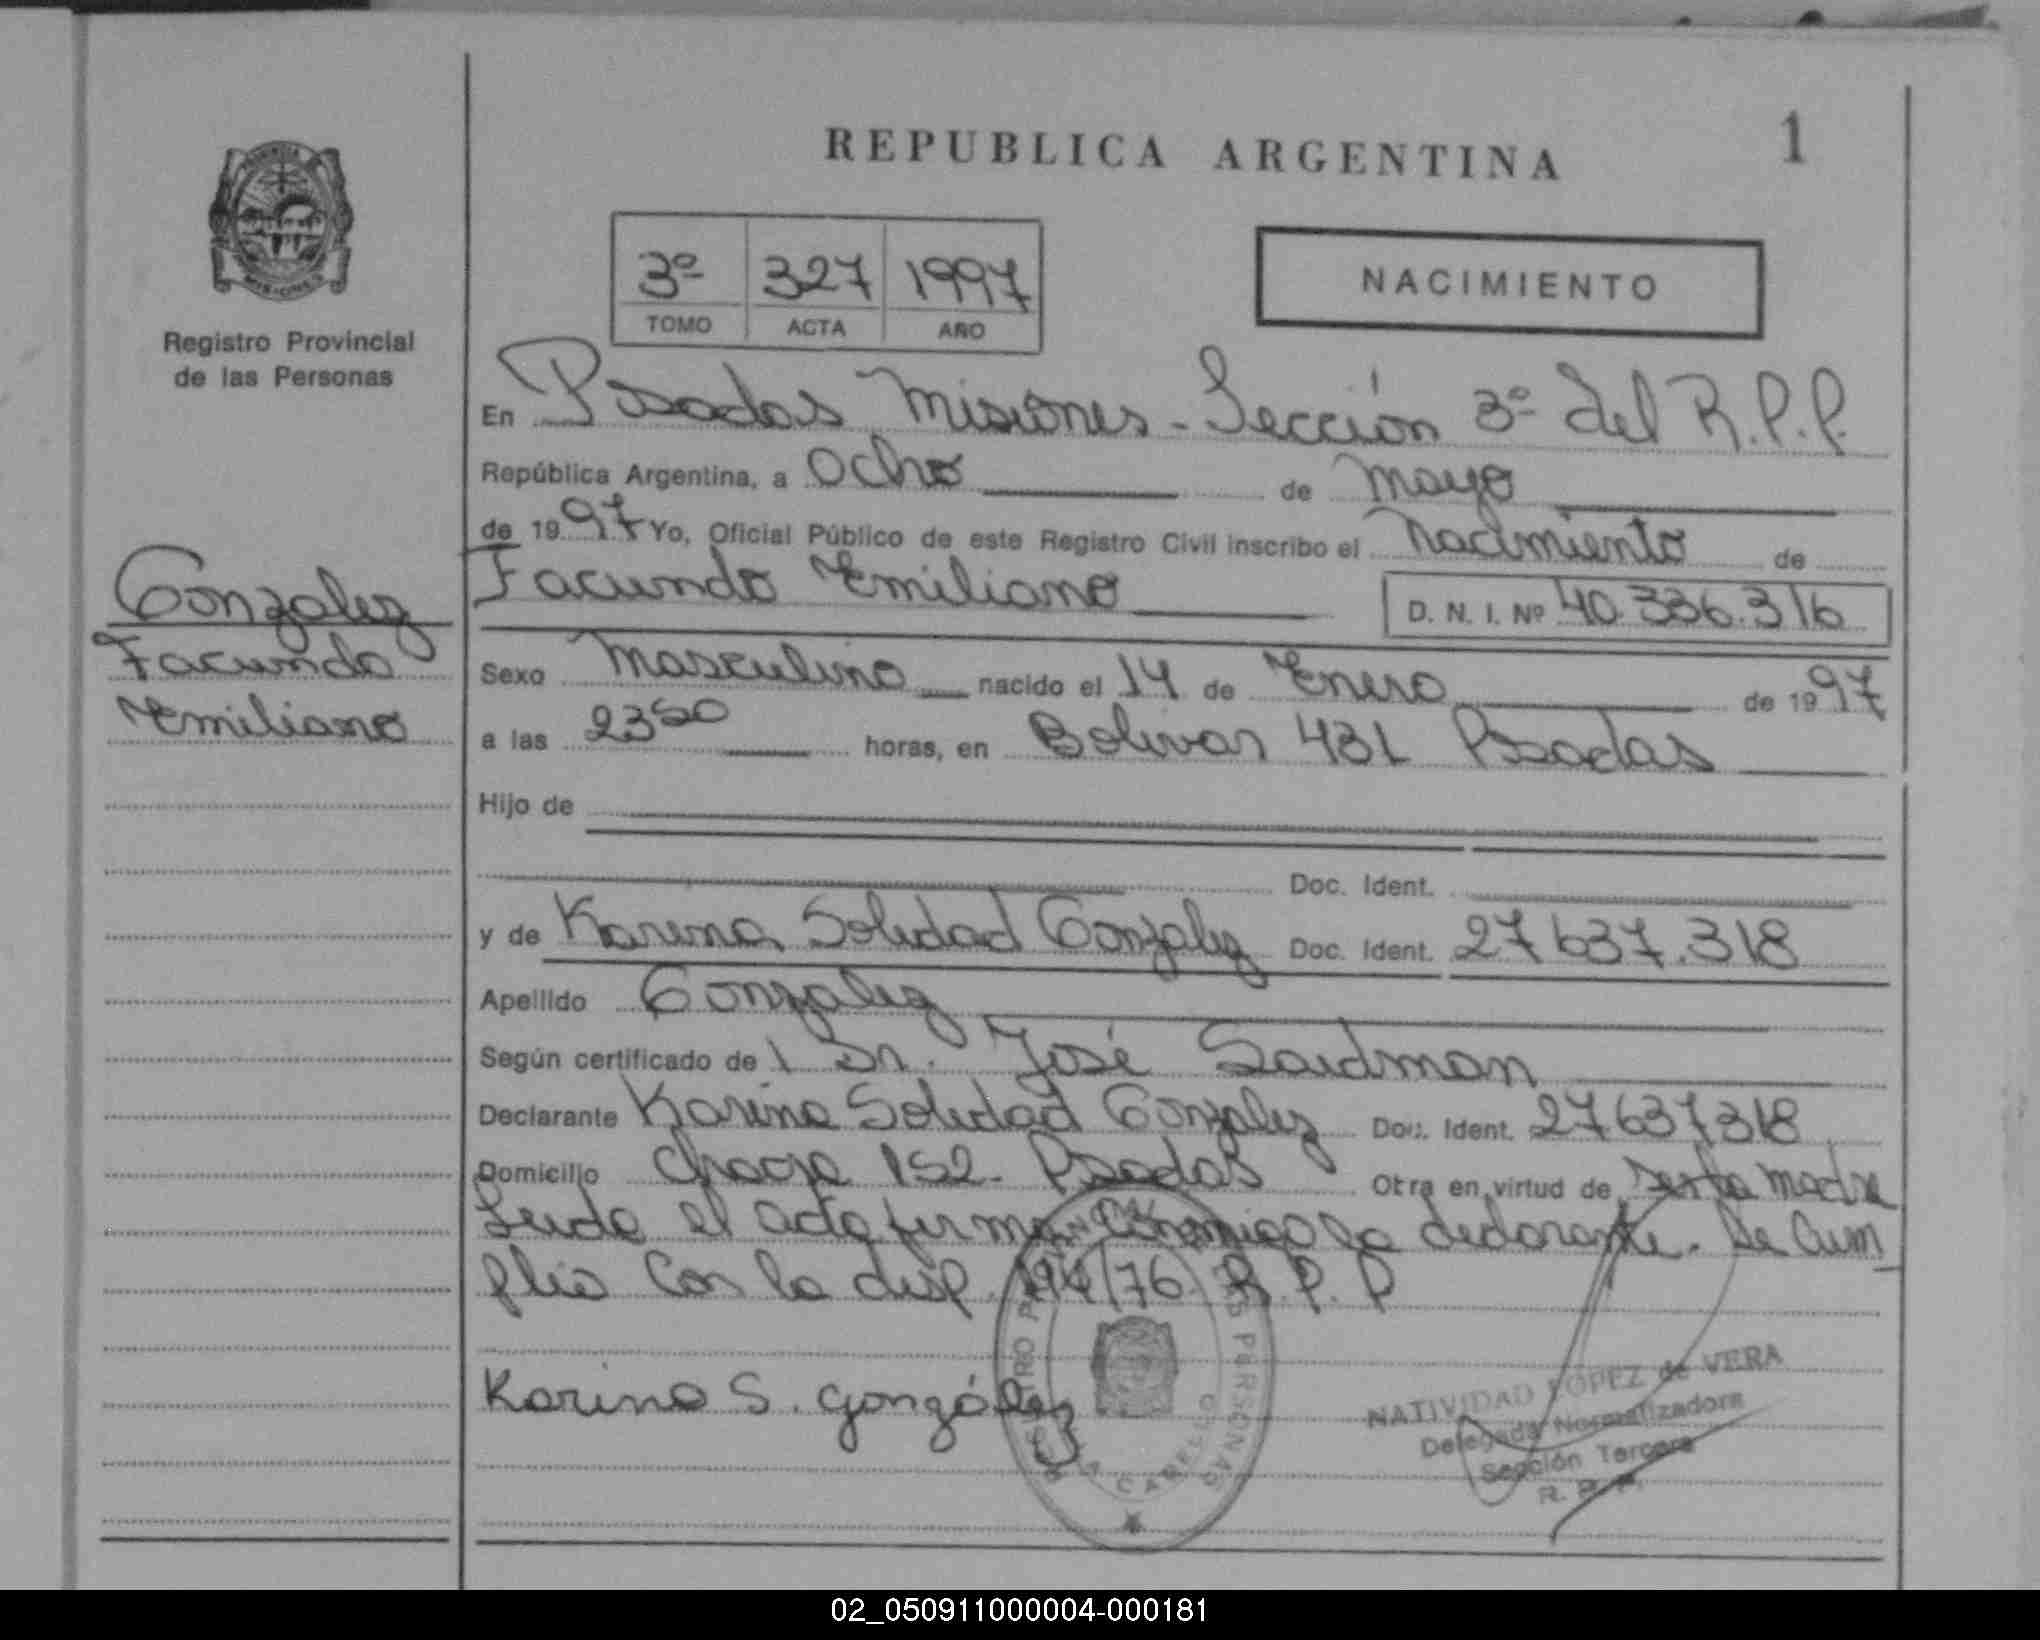 REPUBLICA ARGENTINA
1
PROVINCIA DE
MISIONES
Registro Provincial
de las Personas
3º 327 1997
TOMO ACTA AÑO
NACIMIENTO
En Posadas Misiones - Sección 3º del R.P.P.
República Argentina, a Ocho de Mayo
de 1997 Yo, Oficial Público de este Registro Civil inscribo el Nacimiento de
Facundo Emiliano D. N. I. Nº 40.336.316
Gonzalez
Facundo
Emiliano
Sexo Masculino nacido el 14 de Enero de 1997
a las 2350 horas, en Bolivar 431 Posadas
Hijo de
Doc. Ident.
y de Karina Soledad Gonzalez Doc. Ident. 27637.318
Apellido Gonzalez
Según certificado de l Dr. José Saidman
Declarante Karina Soledad Gonzalez Doc. Ident. 27637318
Domicilio Chacra 152 - Posadas Otra en virtud de ser la madre
Leida el acta firma conmigo la declarante. Se Cum
plio Con la disp. 194/76 R.P.P
Karina S. González
NATIVIDAD LOPEZ de VERA
Delegada Normalizadora
Sección Tercera
R. P. P.
02_050911000004-000181